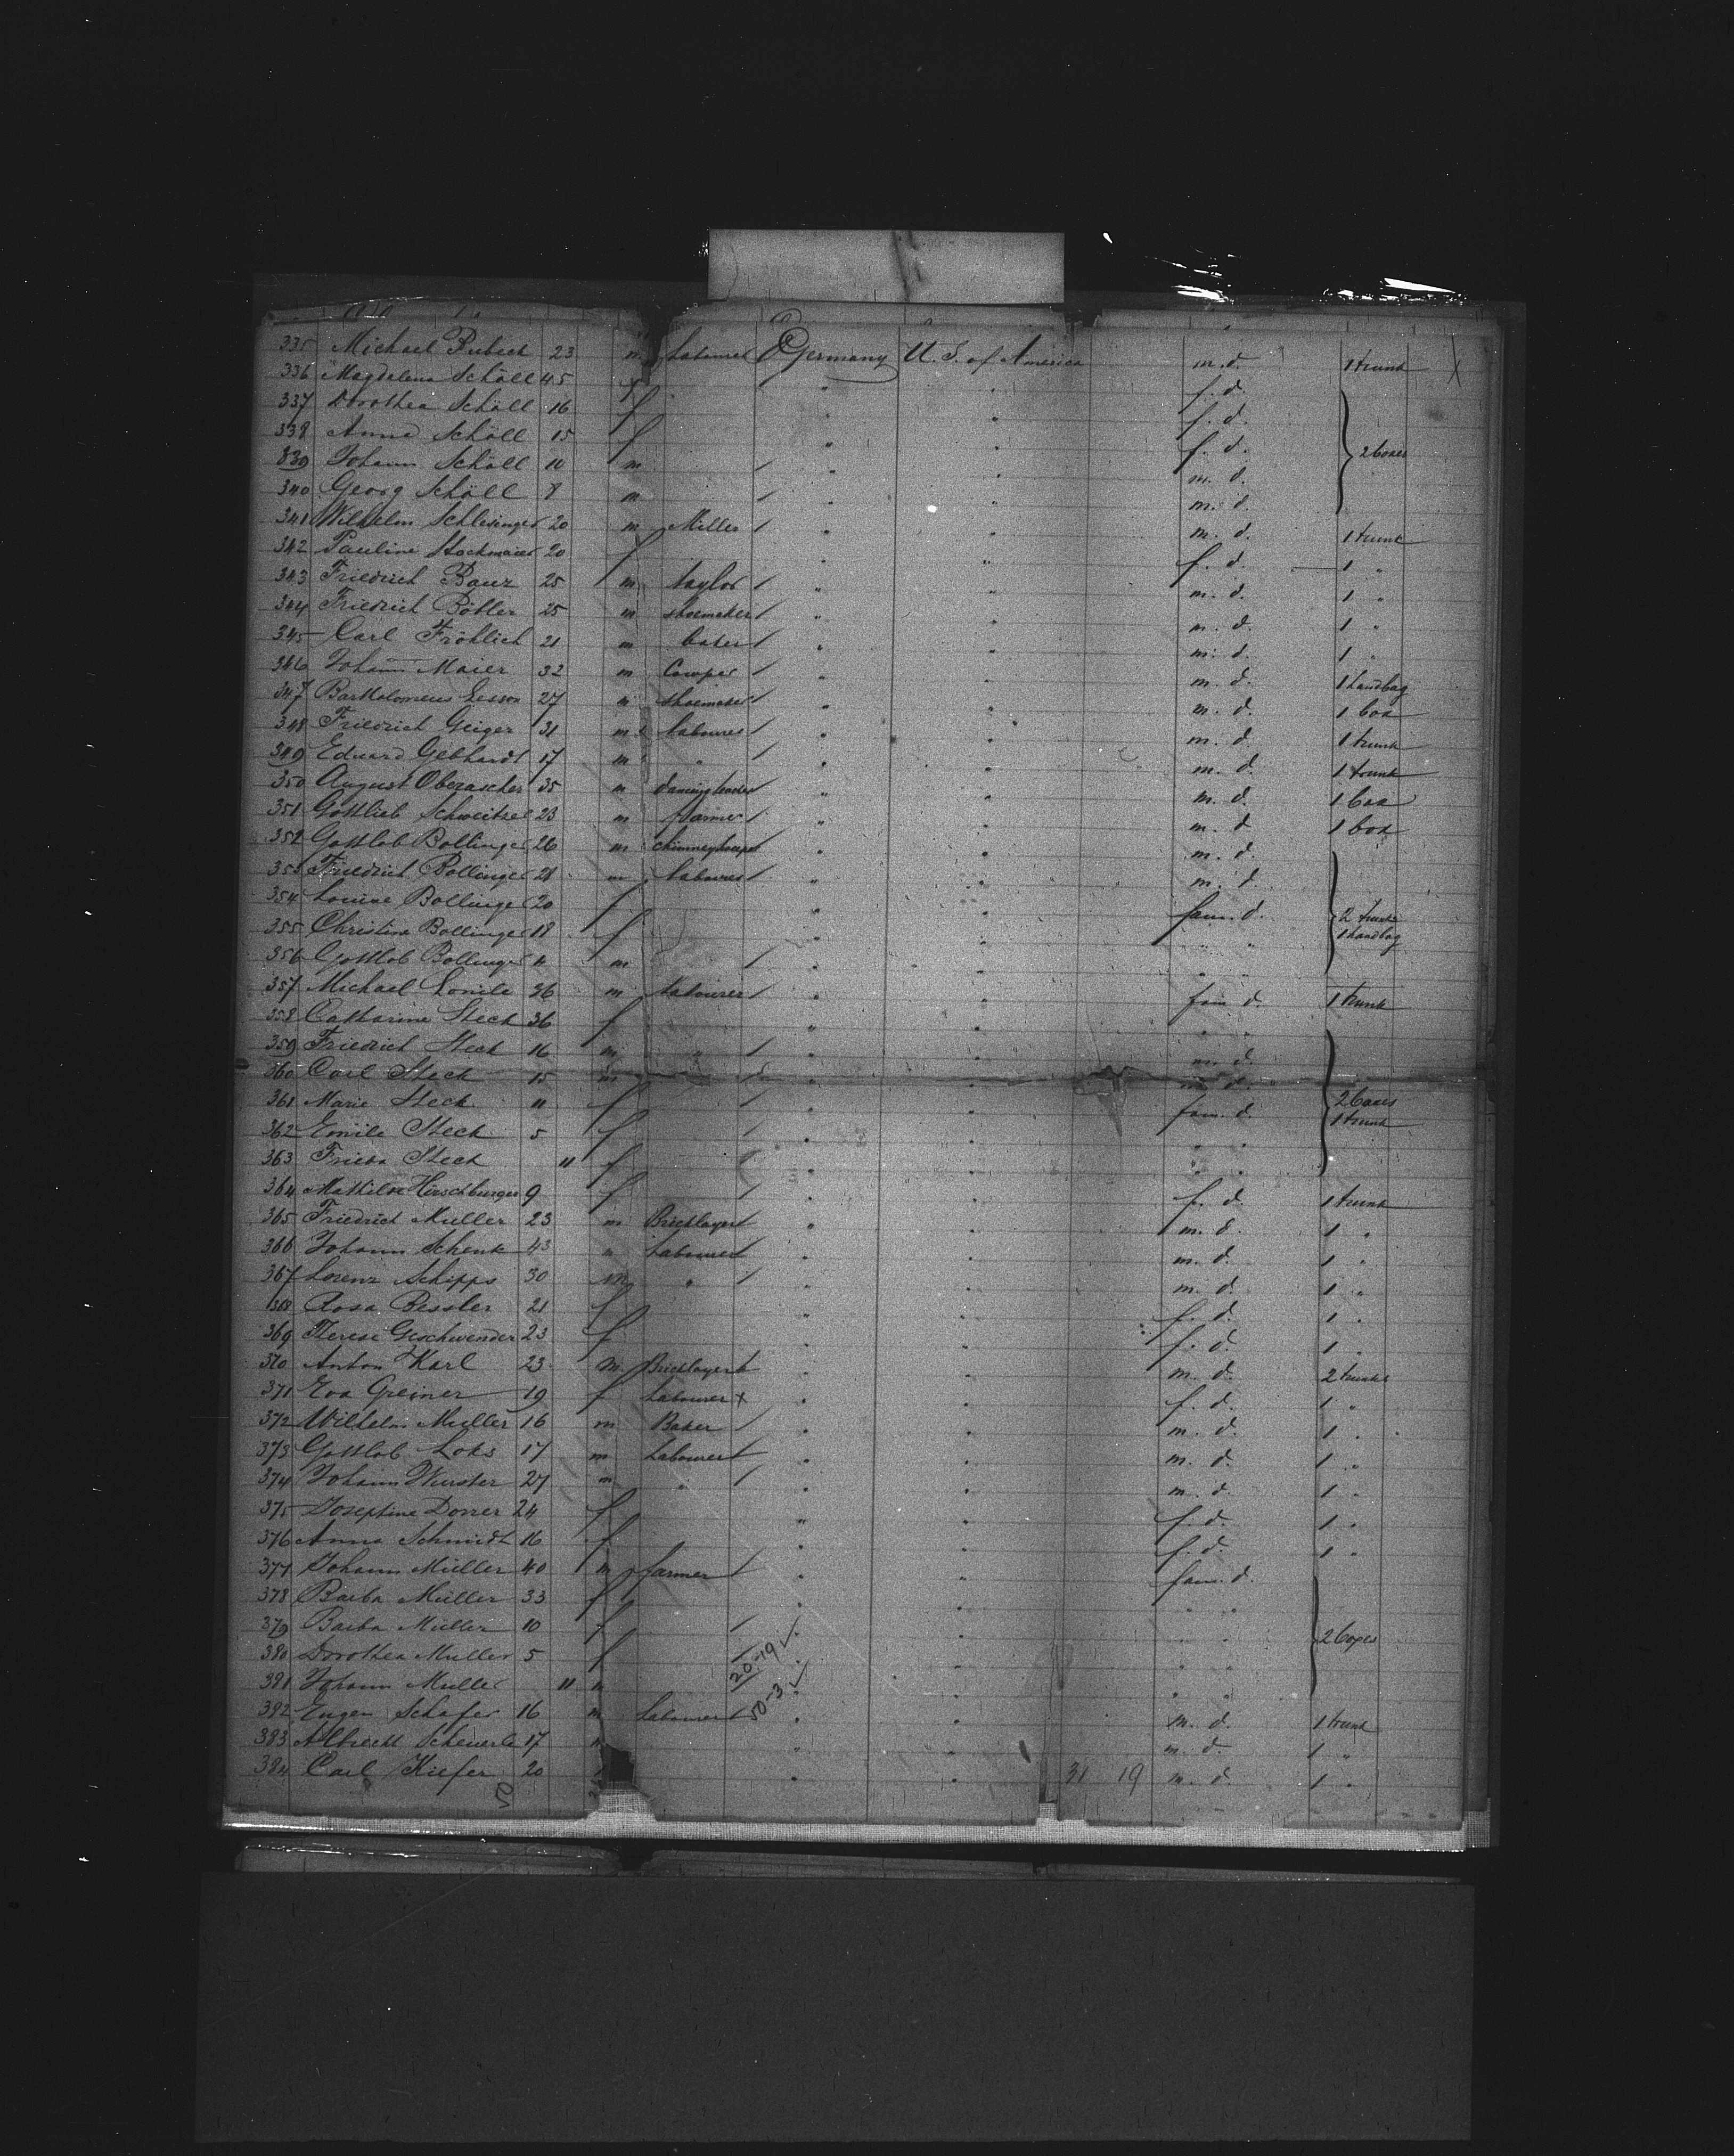 335 Michael Rubeck 23 m Labourer Germany U. S. of America m. d. 1 trunk
336 Magdelena Schöll 45 f " " f. d.
337 Dorothea Schöll 16 f " " f. d.
338 Anna Schöll 15 f " " f. d. 2 boxes
339 Johann Schöll 10 m / " " m. d.
340 Georg Schöll 8 m / " " m. d.
341 Wilhelm Schlesinger 20 m Miller / " " m. d. 1 trunk
342 Pauline Stockmaier 20 f " " f. d. 1 "
343 Friedrich Baur 25 m taylor / " " m. d. 1 "
344 Friedrich Böhler 25 m shoemaker / " " m. d. 1 "
345 Carl Fröhlich 21 m baker / " " m. d. 1 "
346 Johann Maier 32 m Cowper / " " m. d. 1 handbag
347 Bartholomeus 27 m shoemaker / " " m. d. 1 box
348 Friedrich Geiger 31 m labourer / " " m. d. 1 trunk
349 Eduard Gebhardt 17 m " / " " m. d. 1 trunk
350 August Oberascher 35 m / " " m. d. 1 box
351 Gottlieb Schweitzer 23 m farmer / " " m. d. 1 box
352 Gottlob Bollinger 26 m " " m. d.
353 Friedrich Bollinger 28 m labourer / " " m. d.
354 Louise Bollinger 20 f " " fam. d. 2 trunks
355 Christine Bollinger 18 f " " " " 1 handbag
356 Gottlob Bollinger 4 m / " " " "
357 Michael 36 m labourer / " " fam d. 1 trunk
358 Catharine Steck 36 f " " " "
359 Friedrich Steck 16 m " / " " m. d.
360 Carl Steck 15 m / " " m. d.
361 Marie Steck 11 f / " " fam. d. 2 boxes
362 Emile Steck 5 f / " " " " 1 trunk
363 Frieda Steck 11 f / " " " "
364 Mathilde Hirschburger 9 f / " " f. d. 1 trunk
365 Friedrich Muller 23 m Bricklayer / " " m. d. 1 "
366 Johann Schenk 43 m Labourer / " " m. d. 1 "
367 Lorenz Schipps 30 m " / " " m. d. 1 "
368 Rosa Bessler 21 f " " f. d. 1 "
369 Therese Geschwender 23 f " " f. d. 1 "
370 Anton Karl 23 m. Bricklayer / " " m. d. 2 trunks
371 Eva Greiner 19 f Labourer x " " f. d. 1 "
372 Wilhelm Muller 16 m Baker / " " m. d. 1 "
373 Gottlob Loks 17 m Labourer / " " m. d. 1 "
374 Johann Wurster 27 m " / " " m. d. 1 "
375 Josephine Dorrer 24 f " " f. d. 1 "
376 Anna Schmidt 16 f " " f. d. 1 "
377 Johann Müller 40 m farmer / " " fam. d.
378 Barba Müller 33 f " " " "
379 Barba Müller 10 f / " " " " 2 boxes
380 Dorothea Muller 5 f / 20-19 ✓ " " " "
381 Johann Muller 11 m " " " "
382 Eugen Schafer 16 m Labourer / 50-3 ✓ " " m. d. 1 trunk
383 Albrecht Scheuerle 17 m " " m. d. 1 "
384 Carl Kiefer 20 " " 31 19 m. d. 1 "
50